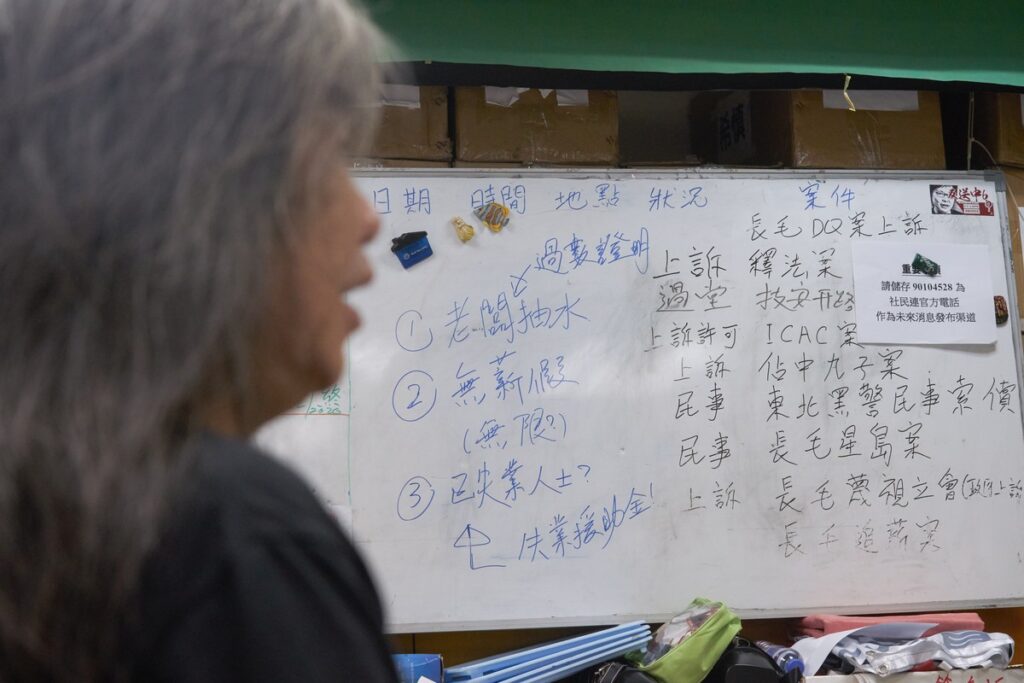 日期 時間 地點 狀況 案件
長毛DQ案上訴
過數證明
上訴 釋法案
過堂
① 老闆抽水
上訴許可 ICAC案
② 無薪假
上訴 佔中九子案
(無限?)
民事 東北黑警民事索償
民事 長毛星島案
③ 已失業人士?
上訴 長毛蔑視立會
失業援助金!
長毛追薪案
反送中
請儲存 90104528 為
社民連官方電話
作為未來消息發布渠道